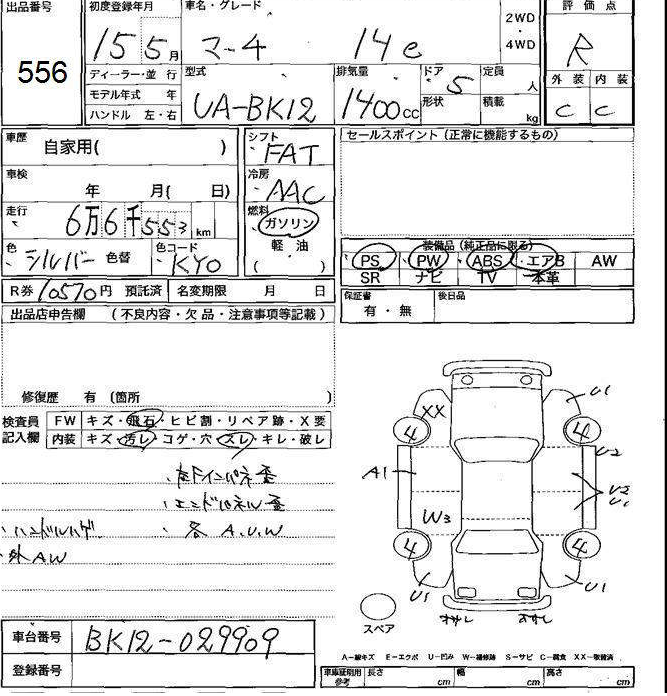 出品番号
556
初度登録年月
15 5月
車名・グレード
マーチ 14e
2WD
・
4WD
評価点
R
ディーラー・並 行
モデル年式 年
ハンドル 左・右
型式
UA-BK12
排気量
1400cc
ドア
5
形状
定員
人
積載
kg
外装 内装
C C
車歴
自家用( )
シフト
FAT
セールスポイント(正常に機能するもの)
車検
年 月( 日)
冷房
AAC
走行
6万6千553km
燃料
ガソリン
軽 油
( )
色
シルバー 色替
色コード
KYO
装備品(純正品に限る)
PS PW ABS エアB AW
SR ナビ TV 本革
R券 10570円 預託済 名変期限 月 日
保証書
有・無
後日品
出品店申告欄 (不良内容・欠品・注意事項等記載)
修復歴 有(箇所 )
検査員
記入欄
FW キズ・飛石・ヒビ割・リペア跡・X要
内装 キズ・汚レ・コゲ・穴・スレ・キレ・破レ
・左下インパネ歪
・エンドパネル歪
・ハンドルハゲ ・各A.U.W
・外AW
XX
U1
4
4
U2
A1
U2
U1
W3
4
4
U1
U1
スペア
A−線キズ E−エクボ U−凹み W−補修跡 S−サビ C−腐食 XX−取替済
車台番号
BK12-029909
登録番号
車庫証明用
参考
長さ cm
幅 cm
高さ cm